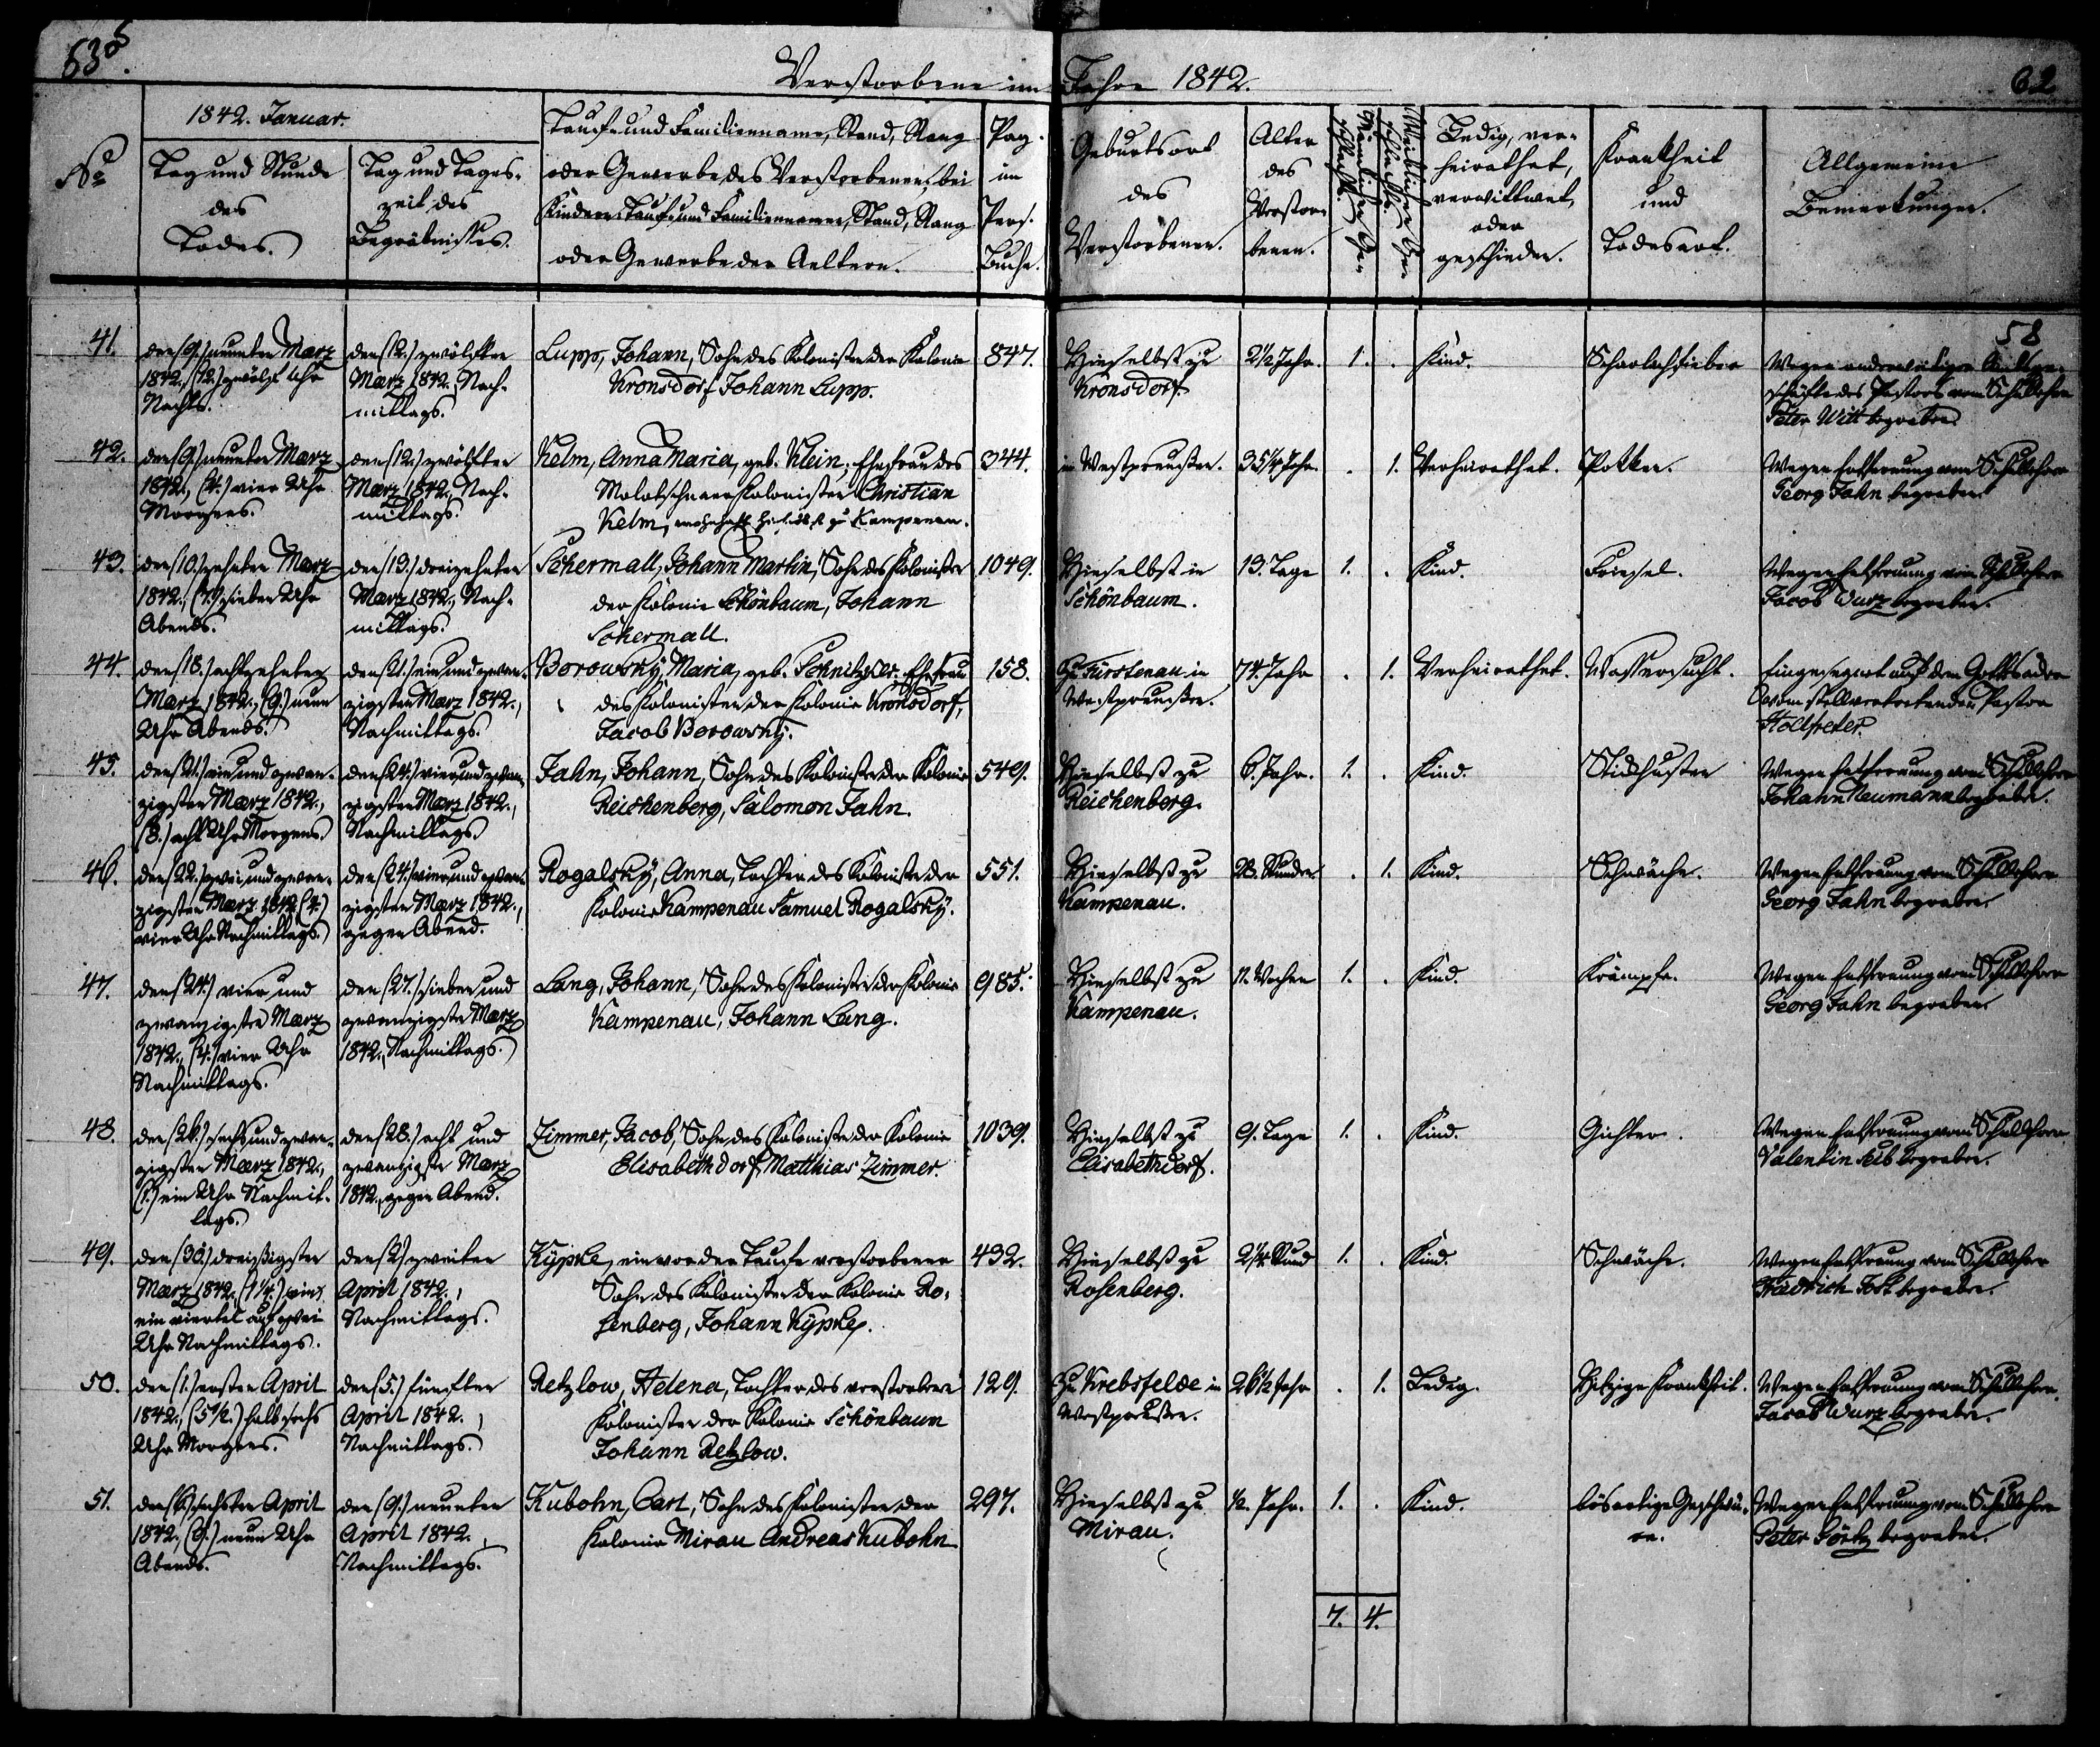 Verstorbene im Jahre 1842.
62
1842. Januar.
No
Tag und Stunde des Todes.
Tag und Tageszeit des Begräbnisses.
Tauf- und Familienname, Stand, Rang
oder Gewerbe des Verstorbenen, bei
Kindern Tauf- und Familienname, Stand, Rang
oder Gewerbe der Aeltern.
Pag. im Pers. Buche.
Geburtsort des Verstorbenen.
Alter des Verstorbenen.
Männlichen Geschlechts.
Weiblichen Geschlechts.
Ledig, verheirathet, verwittwet, oder geschieden.
Krankheit und Todesart.
Allgemeine Bemerkungen.
58
41.
den (9.) neunten Maerz
1842., (12.) zwölf Uhr
Nachts.
den (12.) zwölften
Maerz 1842., Nach-
mittags.
Lupp, Johann, Sohn des Kolonisten der Kolonie
Kronsdorf Johann Lupp.
847.
Hieselbst zu
Kronsdorf.
2 1/2 Jahr.
1.
.
Kind.
Scharlachfieber
Wegen anderweitiger
schäfte des Pastors vom Schullehrer
Peter Witt begraben.
42.
den (9.) neunten Maerz
1842., (4.) vier Uhr
Morgens.
den (12.) zwölften
Maerz 1842., Nach-
mittags.
Kelm, Anna Maria, geb. Klein, Ehefrau des
Molotschnaer Kolonisten Christian
Kelm, wohnhaft hieselbst zu Kampenau.
344.
in Westpreußen.
35 1/4 Jahr.
.
1.
Verheirathet.
Pocken.
Wegen Entfernung vom Schullehrer
Georg Jahn begraben.
43.
den (10.) zehnten Maerz
1842., (7.) sieben Uhr
Abends.
den (13.) dreizehnten
Maerz 1842., Nach-
mittags.
Schermall, Johann Martin, Sohn des Kolonisten
der Kolonie Schönbaum, Johann
Schermall.
1049.
Hieselbst in
Schönbaum.
13. Tage
1.
.
Kind.
Friesel.
Wegen Entfernung vom Schullehrer
Jacob Wurz begraben.
44.
den (18.) achtzehnten
Maerz 1842., (9.) neun
Uhr Abends.
den (21.) ein und zwan-
zigsten Maerz 1842.,
Nachmittags.
Borowsky, Maria, geb. Schnitzker, Ehefrau
des Kolonisten der Kolonie Kronsdorf,
Jacob Borowsky.
158.
Zu Fürstenau in
Westpreußen.
74. Jahr
.
1.
Verheirathet.
Wassersucht.
Eingesegnet auf dem Gottesacker
vom stellvertretenden Pastor
Holtfreter.
45.
den (21.) ein und zwan-
zigsten Maerz 1842.,
(8.) acht Uhr Morgens.
den (24.) vier und zwan-
zigsten Maerz 1842.,
Nachmittags.
Jahn, Johann, Sohn des Kolonisten der Kolonie
Reichenberg, Salomon Jahn.
549.
Hieselbst zu
Reichenberg.
6. Jahr.
1.
.
Kind.
Stickhusten
Wegen Entfernung vom Schullehrer
Johann Neumann begraben.
46.
den (22.) zwei und zwan-
zigsten Maerz 1842 (4.)
vier Uhr Nachmittags.
den (24.) vier und zwan-
zigsten Maerz 1842.,
gegen Abend.
Rogalsky, Anna, Tochter des Kolonisten der
Kolonie Kampenau Samuel Rogalsky.
551.
Hieselbst zu
Kampenau.
28. Stunden
.
1.
Kind.
Schwäche.
Wegen Entfernung vom Schullehrer
Georg Jahn begraben.
47.
den (24.) vier und
zwanzigsten Maerz
1842., (4.) vier Uhr
Nachmittags.
den (27.) sieben und
zwanzigsten Maerz
1842., Nachmittags.
Lang, Johann, Sohn des Kolonisten der Kolonie
Kampenau, Johann Lang.
985.
Hieselbst zu
Kampenau.
11. Wochen
1.
.
Kind.
Krämpfe.
Wegen Entfernung vom Schullehrer
Georg Jahn begraben.
48.
den (26.) sechs und zwan-
zigsten Maerz 1842.,
(1.) ein Uhr Nachmit-
tags.
den (28.) acht und
zwanzigsten Maerz
1842., gegen Abend.
Zimmer, Jacob, Sohn des Kolonisten der Kolonie
Elisabethdorf, Matthias Zimmer.
1039.
Hieselbst zu
Elisabethdorf.
9. Tage
1.
.
Kind.
Gichter.
Wegen Entfernung vom Schullehrer
Valentin Seib begraben.
49.
den (30.) dreißigsten
Maerz 1842. (1 1/4.)
ein viertel auf zwei
Uhr Nachmittags.
den (2.) zweiten
April 1842.,
Nachmittags.
Kypke, ein vor der Taufe verstorbener
Sohn des Kolonisten der Kolonie Ro-
senberg, Johann Kypke.
432.
Hieselbst zu
Rosenberg.
2 1/4 Stund
1.
.
Kind.
Schwäche.
Wegen Entfernung vom Schullehrer
Friedrich begraben.
50.
den (1.) ersten April
1842., (5 1/2.) halb sechs
Uhr Morgens.
den (5.) fünften
April 1842.,
Nachmittags.
Retzlow, Helena, Tochter des verstorbenen
Kolonisten der Kolonie Schönbaum
Johann Retzlow.
129.
Zu Krebsfelde in
Westpreußen.
26 1/2 Jahr
.
1.
Ledig.
Hitzige Krankheit.
Wegen Entfernung vom Schullehrer
Jacob Wurz begraben.
51.
den (6.) sechsten April
1842., (9.) neun Uhr
Abends.
den (9.) neunten
April 1842.,
Nachmittags.
Kubohn, Carl, Sohn des Kolonisten der
Kolonie Mirau Andreas Kubohn
297.
Hieselbst zu
Mirau.
1/2. Jahr.
1.
.
Kind.
bösartige Geschwü-
re.
Wegen Entfernung vom Schullehrer
Peter Görtz begraben.
7.
4.